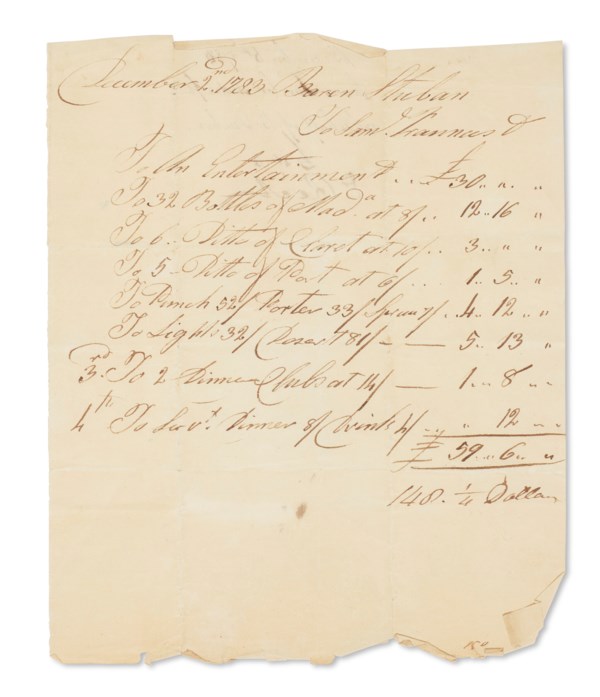 December 2nd 1783 Baron Stuban
To Saml. Fraunces Dr
To An Entertainment .. £30 .. " .. "
To 32 Bottles of Mada. at 8/ .. 12 .. 16 "
To 6 .. Ditto of Claret at 10/ .. 3 .. " "
To 5 .. Ditto of Port at 5/ ... 1 .. 5 .. "
To Punch 52/ Porter 33/ Spruce 7/ .. 4 .. 12 .. "
To Lights 32/ Desert 81/ — — 5 .. 13 "
3rd. To 2 Dinner Clubs at 14/ — 1 .. 8 "
4th To Servt. Dinner 8/ Drink 4/ " 12 "
£ 59 .. 6 .. "
148 . 1/4 Dollars